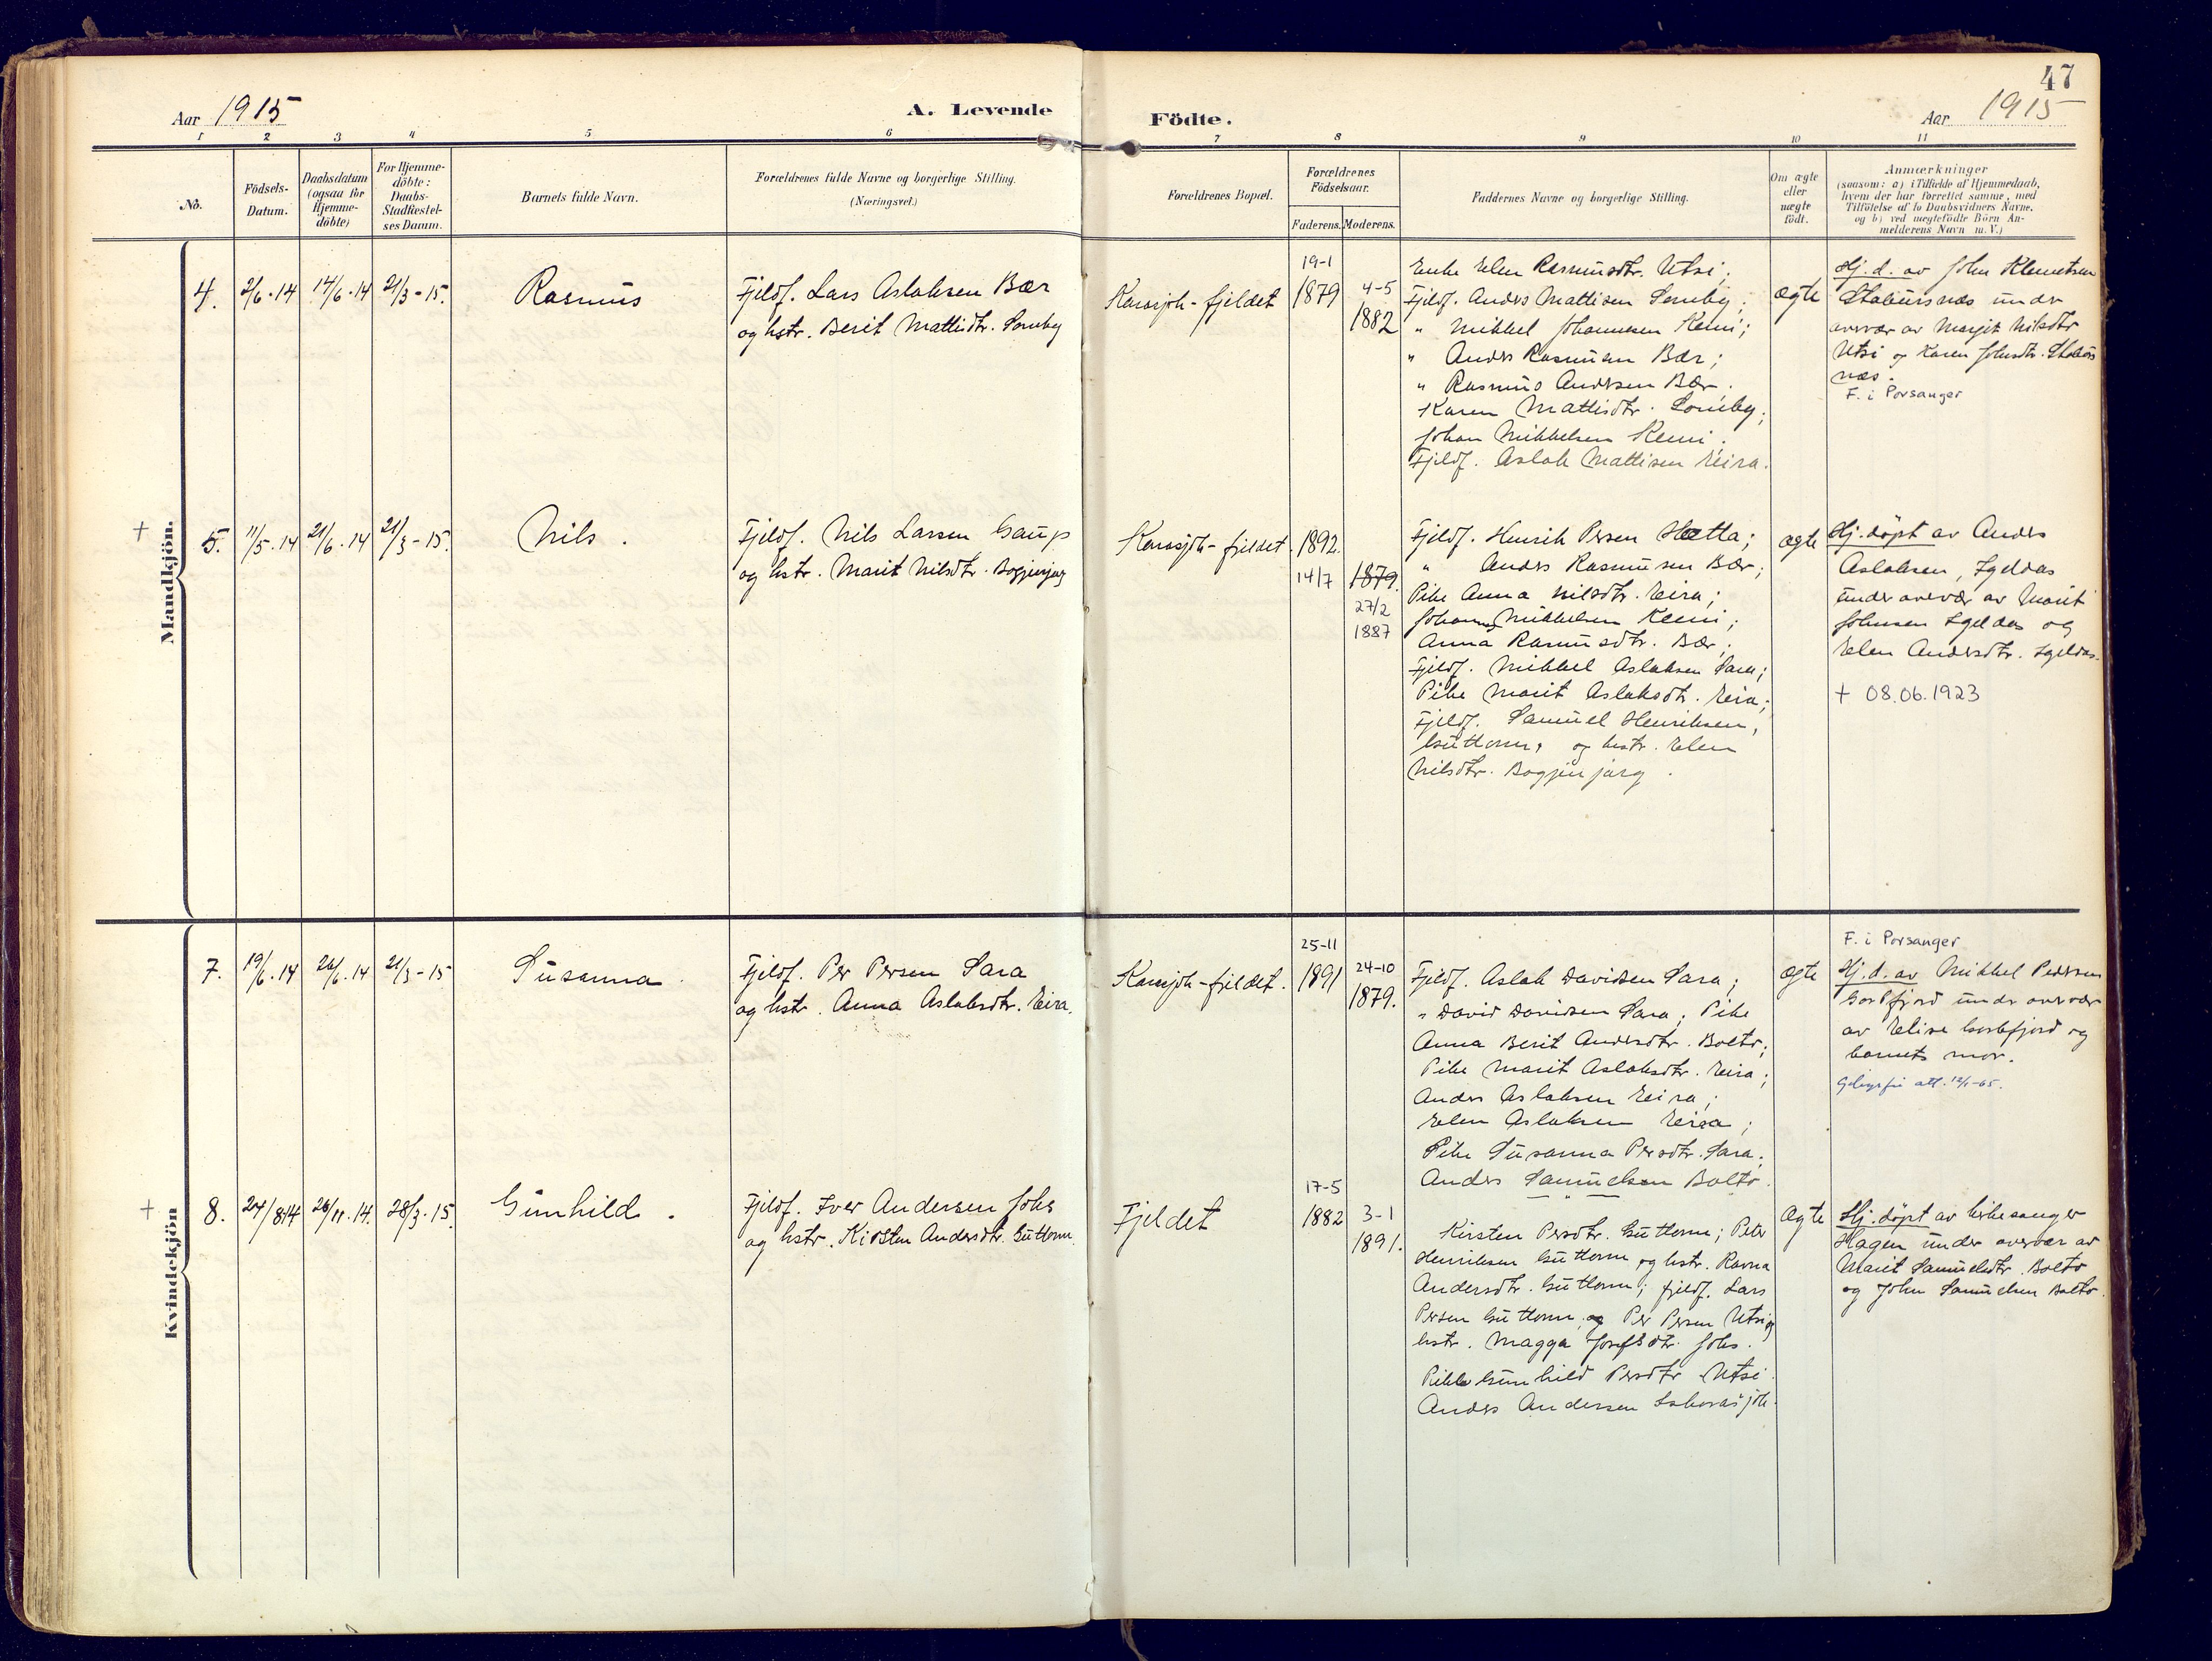 47
Aar 1915
A. Levende
Födte.
Aar 1915
1 2 3 4 5 6 7 8 9 10 11
No.
Födsels-
Datum.
Daabsdatum
(ogsaa for
Hjemme-
döbte)
For Hjemme-
döbte:
Daabs-
Stadfæstel-
ses Datum.
Barnets fulde Navn.
Forældrenes fulde Navne og borgerlige Stilling.
(Næringsvei.)
Forældrenes Bopæl.
Forældrenes
Födselsaar.
Faderens. Moderens.
Faddernes Navne og borgerlige Stilling.
Om ægte
eller
uægte
födt.
Anmærkninger
(saasom: a) i Tilfælde af Hjemmedaab,
hvem der har forrettet samme, med
Tilföielse af to Daabsvidners Navne,
og b) ved uægtefödte Börn An-
melderens Navn m. V.)
Mandkjön.
4. 2/6.14 14/6.14 21/3-15.
Rasmus
Fjeldf. Lars Aslaksen Bær
og hstr. Berit Mattisdtr. Somby
Karasjok-fjeldet
19-1
1879
4-5
1882
Enke Elen Rasmusdtr. Utsi.
Fjeldf. Anders Mattisen Somby;
" Mikkel Johannesen Kemi;
" Anders Rasmusen Bær;
" Rasmus Andersen Bær.
Karen Mattisdtr. Somby;
Johan Mikkelsen Kemi.
Fjeldf. Aslak Mattisen Eira.
ægte
Hj. d. av John Klemetsen
Stabursnæs under
overvær av Margit Nilsdtr
Utsi og Karen Johnsdtr. Staburs
næs.
F. i Porsanger
+ 5. 11/5.14 21/6.14 21/3-15.
Nils.
Fjeldf. Nils Larsen Gaup
og hstr. Marit Nilsdtr. Bogjenjarg
Karasjok-fjeldet.
1892.
14/7
1879.
27/2
1887
Fjeldf. Henrik Persen Hætta;
" Anders Rasmusen Bær;
Pike Anna Nilsdtr. Eira;
Johannes Mikkelsen Kemi;
Anna Rasmusdtr. Bær;
Fjeldf. Mikkel Aslaksen Sara;
Pike Marit Aslaksdtr. Eira;
Fjeldf. Samuel Henriksen,
Guttorm, og hustr. Elen
Nilsdtr. Bogjenjarg.
ægte
Hj. döpt av Anders
Aslaksen, Igeldas
under overvær av Marit
Johnsen Igeldas og
Elen Andersdtr. Igeldas.
+ 08.06.1923
Kvindekjön
7. 19/6.14 26/6.14 21/3-15
Susanna.
Fjeldf. Per Persen Sara
og hstr. Anna Aslaksdtr. Eira.
Karasjok-fjeldet.
25-11
1891
24-10
1879.
Fjeldf. Aslak Davidsen Sara;
" David Davidsen Sara; Pike
Anna Berit Andersdtr. Balto;
Pike Marit Aslaksdtr. Eira;
Anders Aslaksen Eira;
Elen Aslaksen Eira;
Pike Susanna Persdtr. Sara;
Anders Samuelsen Balto.
ægte
F. i Porsanger
Hj. d. av Mikkel Pedersen
under overvær
av Elise og
barnets mor.
att. 12/1-65.
+ 8. 24/8 14 26/11.14. 28/3.15.
Gunhild.
Fjeldf. Iver Andersen Johs
og hstr. Kirsten Andersdtr. Guttorm.
Fjeldet
17-5
1882
3-1
1891.
Kirsten Persdtr. Guttorm; Peter
Henriksen Guttorm og hstr. Ravna
Andersdtr. Guttorm; fjeldf. Lars
Persen Guttorm og Per Persen Utsi og
hstr. Magga Josefsdtr. Johs.
Pike Gunhild Persdtr Utsi.
Anders Andersen
ægte
Hj. döpt av kirkesanger
Hagen under overvær av
Marit Samuelsdtr. Balto
og John Samuelsen Balto.